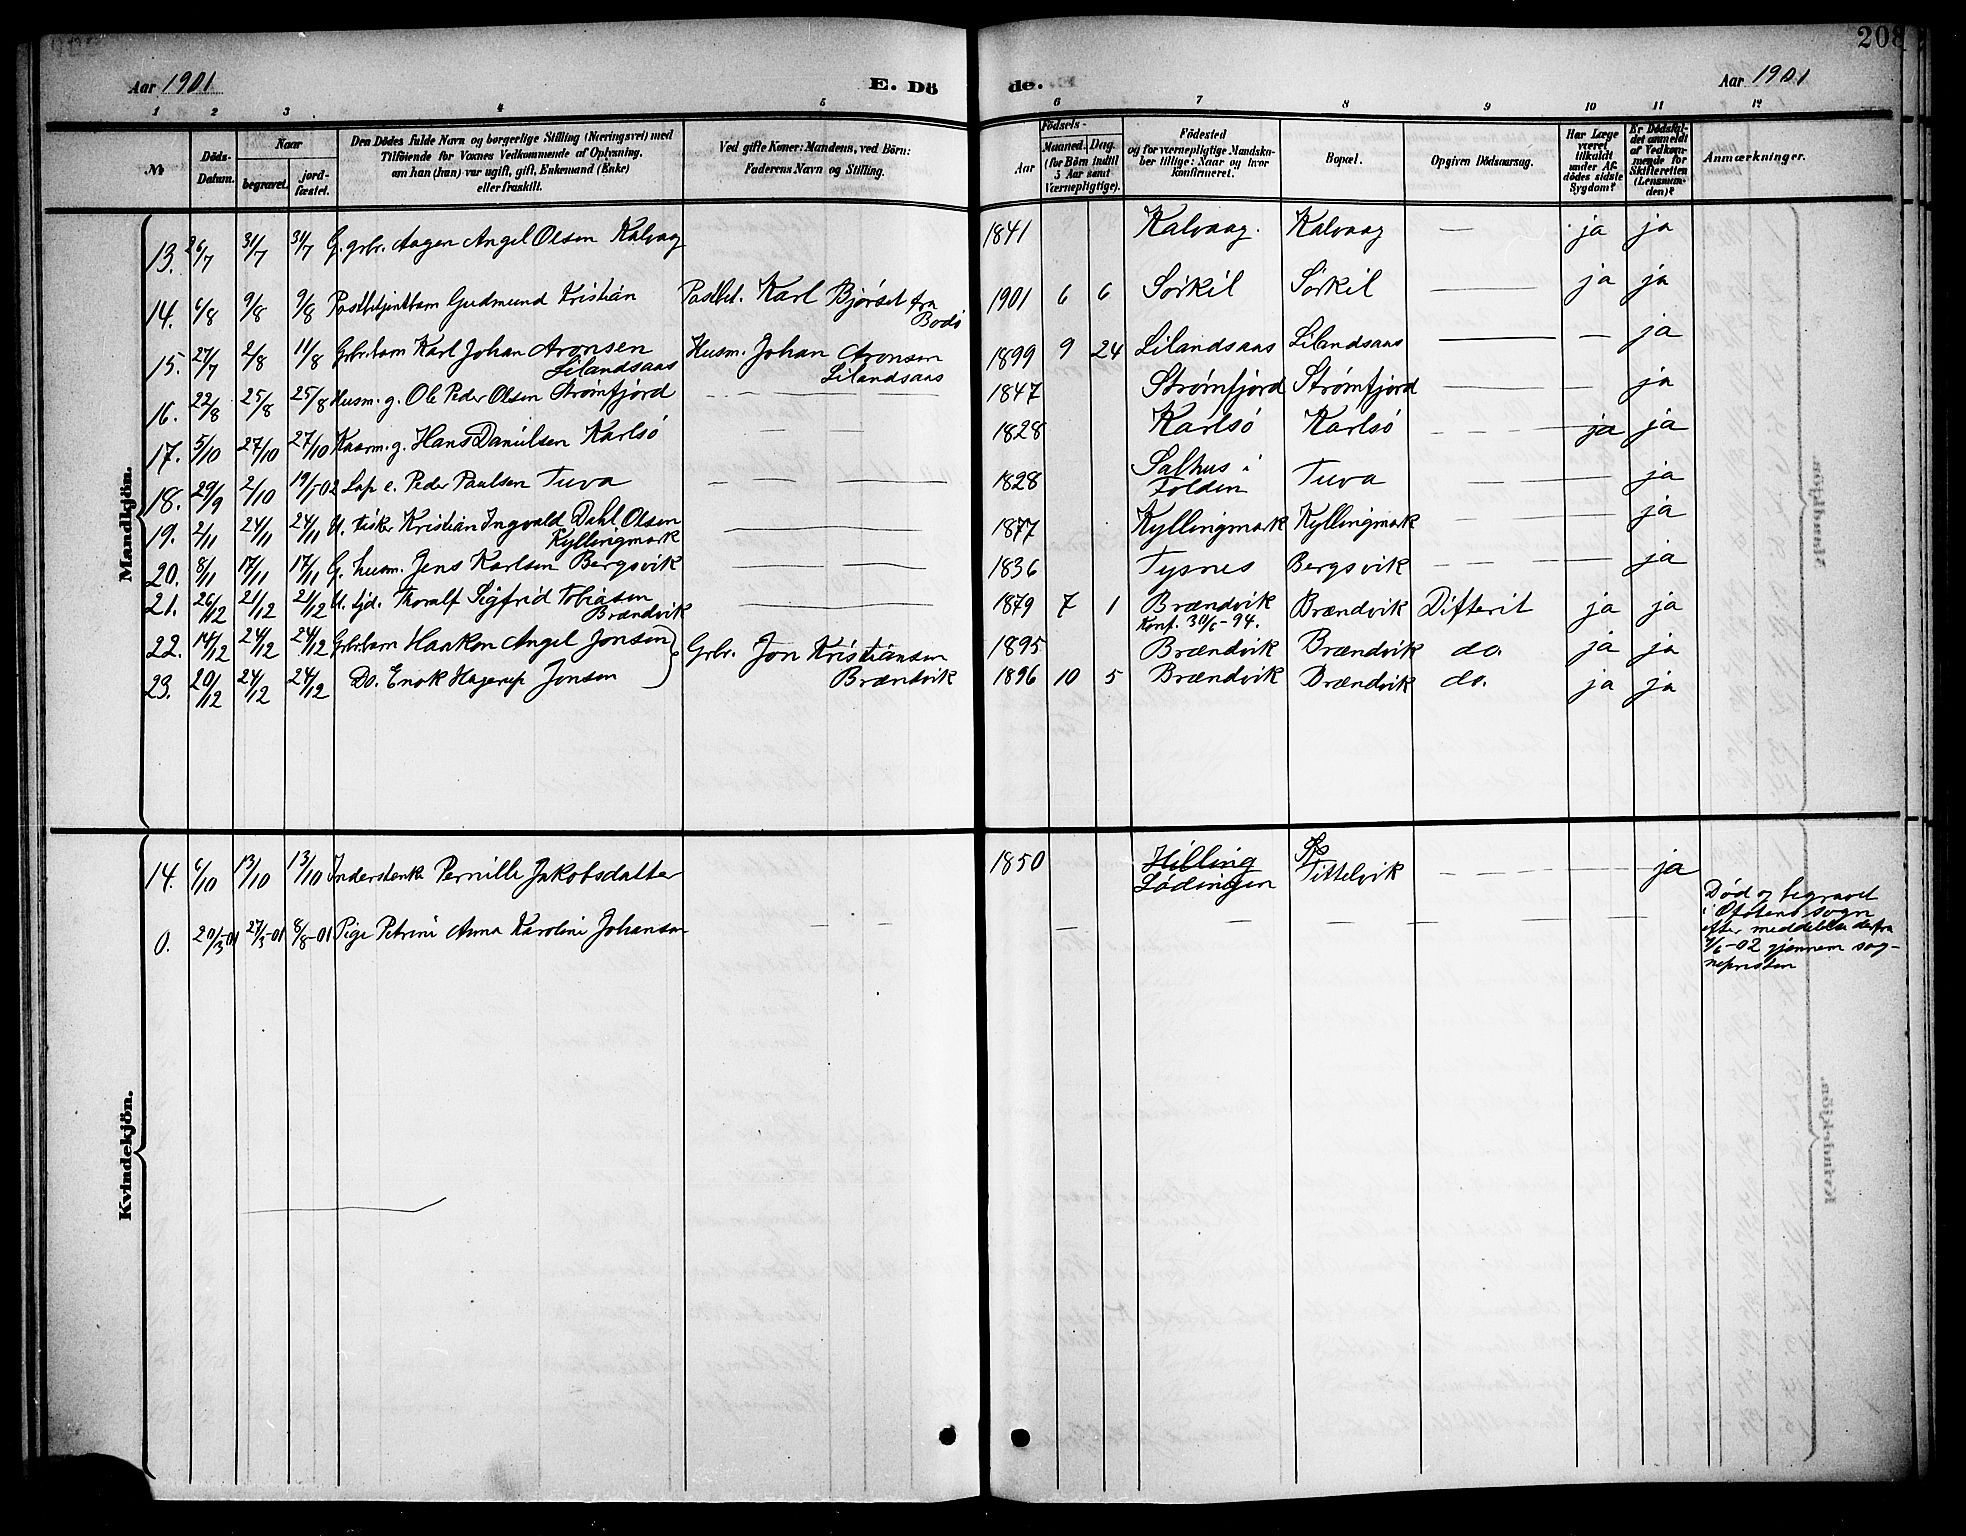 208
Aar 1901
E. Dö
de.
Aar 1901
1 2 3 4 5 6 7 8 9 10 11 12
№
Döds-
Datum.
Naar
begravet.
jord-
fæstet.
Den Dödes fulde Navn og borgerlige Stilling (Næringsvei) med
Tilföiende for Voxnes Vedkommende af Oplysning,
om han (hun) var ugift, gift, Enkemand (Enke)
eller fraskilt.
Ved gifte Koner: Mandens, ved Börn:
Faderens Navn og Stilling.
Födsels-
Aar
Maaned. Dag.
(for Börn indtil
5 Aar samt
Værnepligtige).
Födested
og for værnepligtige Mandska-
ber tillige: Naar og hvor
konfirmeret.
Bopæl.
Opgiven Dödsaarsag.
Har Læge
været
tilkaldt
under Af-
dödes sidste
Sygdom?
Er Dödsfal-
det anmeldt
af Vedkom-
mende for
Skifteretten
(Lensman-
den)?
Anmærkninger.
Mandkjön.
13. 26/7 31/7 31/7 G. grbr. Aagen Angel Olsen Kalvaag 1841 Kalvaag. Kalvaag — ja ja
14. 6/8 9/8 9/8 Postbetjentbarn Gudmund Kristian Postbet. Karl Bjørset fra 1901 6 6 Sörkil Sörkil — ja ja
Bodö
15. 27/7 2/8 11/8 Grbr.barn Karl Johan Aronsen Husm. Johan Aronsen 1899 9 24 Lilandsaas Lilandsaas — — ja
Lilandsaas Lilandsaas
16. 22/8 25/8 25/8 Husm. g. Ole Peder Olsen Strømfjord — 1847 Strømfjord Strømfjord — — ja
17. 5/10 27/10 27/10 Kaarm. g. Hans Danielsen Karlsö — 1828 Karlsö Karlsö — ja ja
18. 29/9 2/10 19/1-02 Lap e. Peder Paulsen Tuva — 1828 Salhus i Tuva ja
Folden
19. 2/11 24/11 24/11 U. fisker Kristian Ingvald Dahl Olsen — 1877 Kyllingmark Kyllingmark — — ja
Kyllingmark
20. 8/11 17/11 17/11 G. husm. Jens Karlsen Bergsvik — 1836 Tysnes Bergsvik — — ja
21. 26/12 21/12 21/12 U. tjd. Thoralf Sigfrid Tobiasen — 1879 7 1 Brændvik Brændvik Difterit ja ja
Brændvik Konf. 30/6-94.
22. 14/12 24/12 24/12 Grbr.barn Haakon Angel Jonsen Grbr. Jon Kristiansen 1895 Brændvik Brændvik do. ja ja
23. 20/12 24/12 24/12 Do. Enok Hagerup Jonsen Brændvik 1896 10 5 Brændvik Brændvik do. ja ja
Kvindekjön.
14. 6/10 13/10 13/10 Inderstenke Pernille Jakobsdatter 1850 Hilling Tittelvik — ja
Lödingen
0. 20/3-01 27/3-01 8/8-01 Pige Petrine Anna Karoline Johansen — — — — — — —
Död og begravet
i Ofotens sogn
efter meddelelse derfra
/6-02 gjennem sog-
nepresten
Mandkjön.
Kvindekjön.